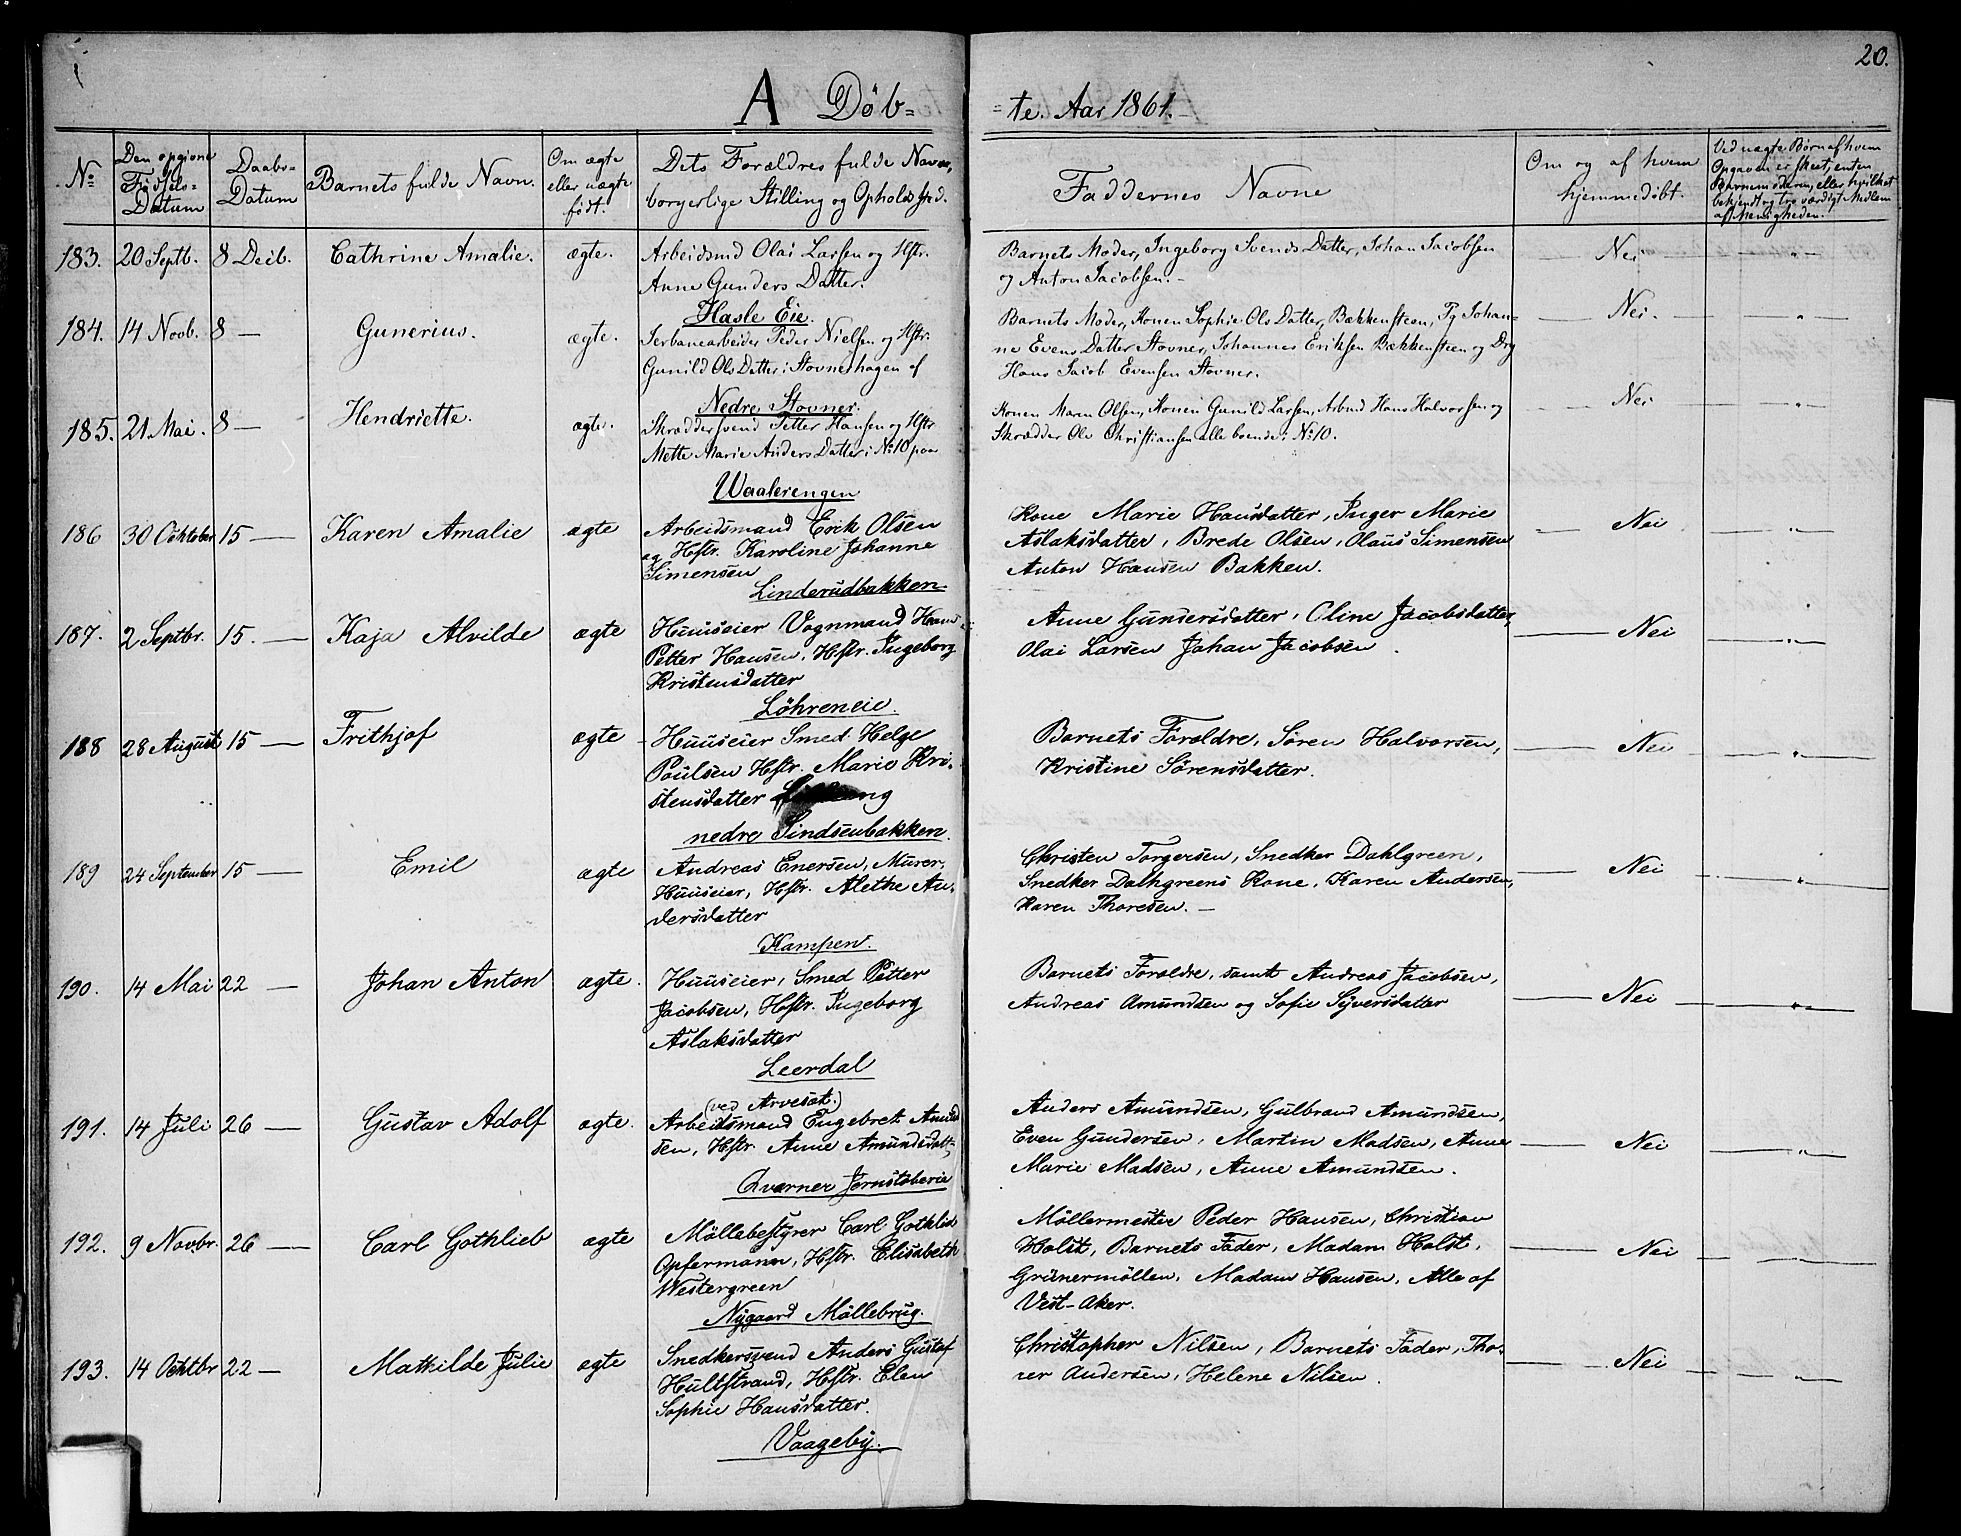 20.
A Døb=
=te. Aar 1861.
№
Den opgivne Fødsels-Datum
Daabs-Datum
Barnets fulde Navn.
Om ægte eller uægte født.
Dets Forældres fulde Navne, borgerlige Stilling og Opholdssted.
Faddernes Navne
Om og af hvem hjemmedöbt.
Ved uægte Børn af hvem Opgaven er skeet, enten Barnemoderen, eller hvilket bekjendt og troværdigt Medlem af Menigheden.
183. 20 Septb. 8 Decb. Cathrine Amalie. ægte. Arbeidsmd Olai Larsen og Hstr.
Anne Gunders Datter.
Hasle Eie.
Barnets Moder, Ingeborg Svends Datter, Johan Jacobsen
og Anton Jacobsen.-
Nei
184. 14 Novb. 8 — Gunerius. ægte. Jerbanearbeider Peder Nielsen og Hstr.
Gunild Ols Datter i Stovnerhagen af
Nedre Stovner.
Barnets Moder, Konen Sophie Ols Datter, Bækkensteen, Pg Johan=
ne Evens Datter Stovner, Johannes Eriksen Bækkensteen og Drg
Hans Jacob Evensen Stovner.
Nei.
185. 21 Mai. 8 — Hendriette. ægte. Skræddersvend Petter Hansen og Hstr.
Mette Marie Anders Datter i № 10 paa
Waalerengen
Konen Maren Olsen, Konen Gunild Larsen, Arbmd Hans Halvorsen og
Skrædder Ole Christiansen alle boende i № 10.
Nei
186 30 Ocktober 15 — Karen Amalie ægte Arbeidsmand Erik Olsen
og Hstr. Karoline Johanne
Simensen
Linderudbakken
Kone Marie Hansdatter, Inger Marie
Aslaksdatter, Brede Olsen, Olaus Simensen
Anton Hansen Bakken.
Nei
187. 2 Septbr. 15. — Kaja Alvilde ægte Huuseier Vognmand Hans
Petter Hansen, Hstr. Ingeborg
Kristensdatter
Löhreneie.
Anne Gundersdatter, Oline Jacobsdatter,
Olai Larsen Johan Jacobsen.
Nei
188 28 August 15 — Frithjof ægte Huuseier Smed Helge
Poulsen Hstr. Marie Kri-
stensdatter
nedre Sindsenbakken.
Barnets Foroldre, Sören Halvorsen,
Kristine Sörensdatter.
Nei
189 24 September 15 — Emil ægte Andreas Enersen, Murer,
Huuseier, Hstr. Alethe An-
dersdatter
Kampen.
Christen Torgersen, Snedker Dahlgreen,
Snedker Dalhgreens Kone, Karen Andersen,
Karen Thoresen. —
Nei
190. 14 Mai 22 — Johan Anton ægte. Huuseier, Smed Petter
Jacobsen, Hstr. Ingeborg
Aslaksdatter
Leerdal
Barnets Foroldre, samt Andreas Jacobsen,
Andreas Amundsen og Sofie Syversdatter
Nei
191. 14 Juli 26 — Gustav Adolf ægte. (ved Arvesøt.)
Arbeidsmand Engebret Amund
sen, Hstr. Anne Amundsdatt-
Qværner Jernstøberie
Anders Amundsen, Gulbrand Amundsen,
Even Gundersen, Martin Madsen, Anne
Marie Madsen, Anne Amundsen.
Nei
192. 9 Novbr. 26 — Carl Gothlieb ægte Möllebestyrer Carl Gothlieb
Opfermann, Hstr. Elisabeth
Westergreen
Nygaard Möllebrug.
Möllermester Peder Hansen, Christian
Holst, Barnets Fader, Madam Holst,
Grünermöllen, Madam Hansen, Alle af
Vest-Aker.
Nei
193. 14 Ocktbr 22 — Mathilde Julie ægte Snedkersvend Anders Gustaf
Hultstrand, Hstr. Elen
Sophie Hansdatter.
Vaageby.
Christopher Nilsen, Barnets Fader, Tho-
rer Andersen, Helene Nilsen.
Nei